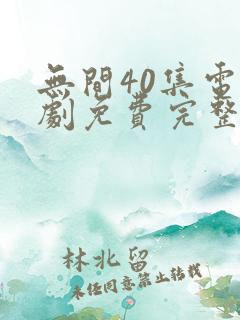 無間40集電
劇免費完整
林北留
未经同意禁止转载